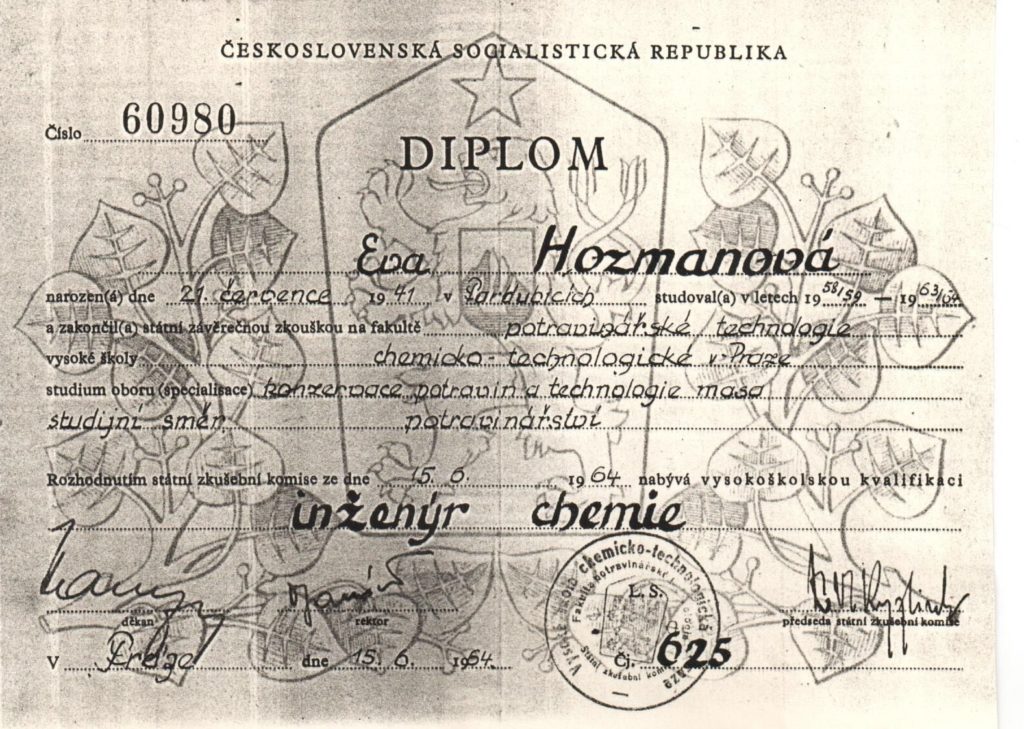 ČESKOSLOVENSKÁ SOCIALISTICKÁ REPUBLIKA
Číslo 60980
DIPLOM
Eva Hozmanová
narozen(á) dne 21. července 1941 v Pardubicích studoval(a) v letech 1958/59 — 1963/64
a zakončil(a) státní závěrečnou zkouškou na fakultě potravinářské technologie
vysoké školy chemicko-technologické v Praze
studium oboru (specialisace) konzervace potravin a technologie masa
studijní směr potravinářství
Rozhodnutím státní zkušební komise ze dne 15. 6. 1964 nabývá vysokoškolskou kvalifikaci
inženýr chemie
děkan rektor předseda státní zkušební komise
Vysoká škola chemicko-technologická
Fakulta potravinářské
Státní zkušební
L. S.
V Praze dne 15. 6. 1964. Čj. 625